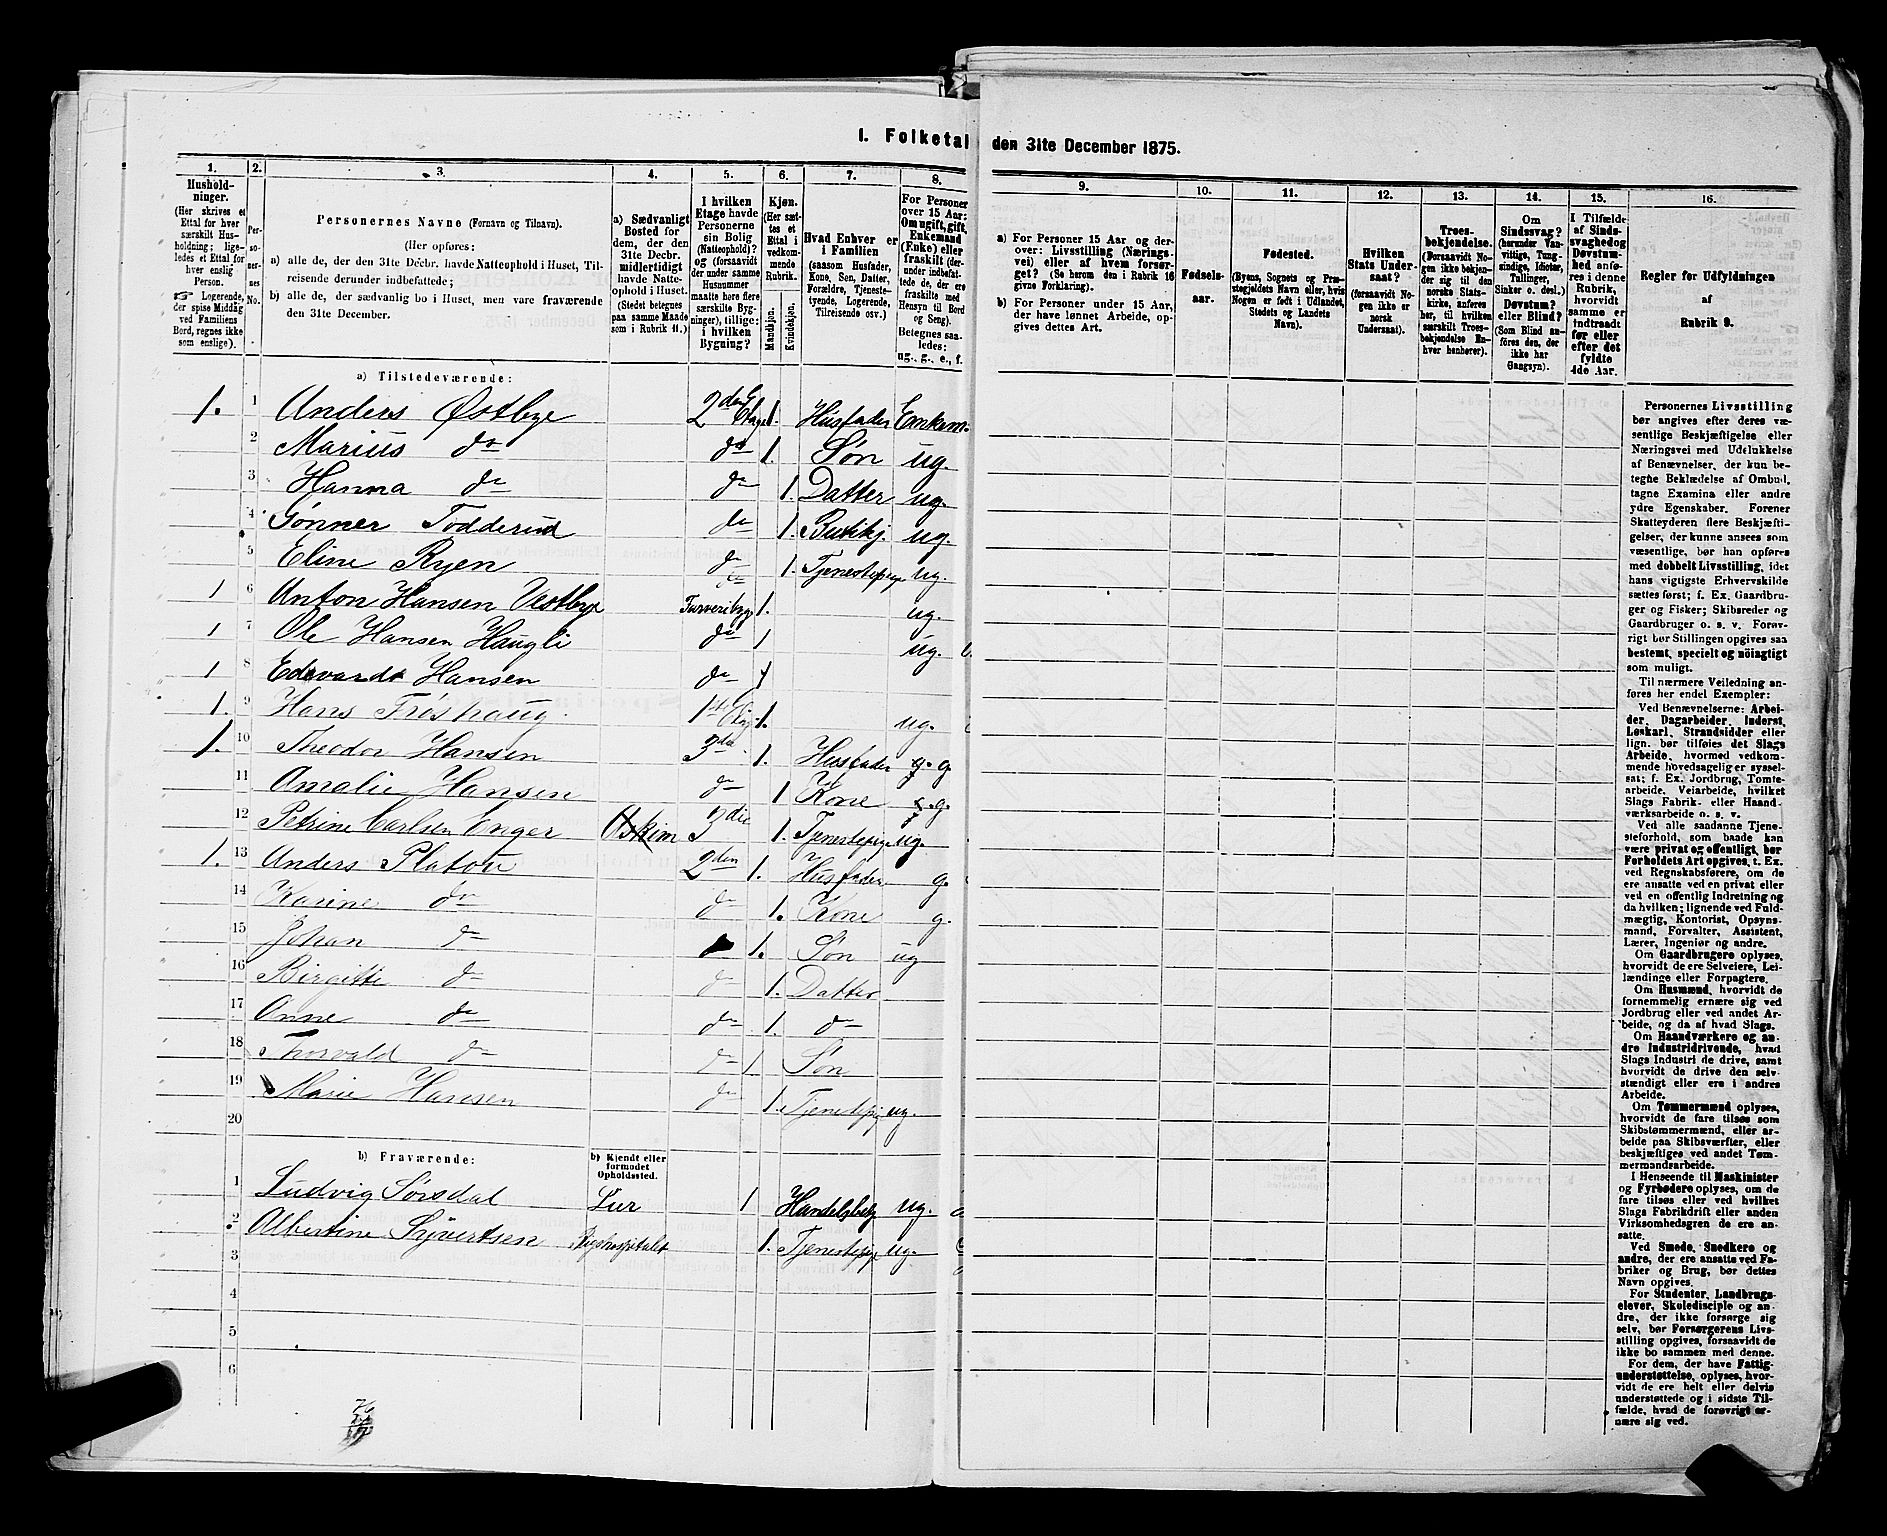 I. Folketal den 31te December 1875.
1. 2. 3. 4. 5. 6. 7. 8. 9. 10. 11. 12. 13. 14. 15. 16.
Hushold-
ninger.
(Her skrives et
Ettal for hver
særskilt Hus-
holdning; lige-
ledes et Ettal for
hver enslig
Person.
☞ Logerende,
der spise Middag
ved Familiens
Bord, regnes ikke
som enslige).
Per-
so-
ner-
nes
No.
Personernes Navne (Fornavn og Tilnavn).
(Her opføres:
a) alle de, der den 31te Decbr. havde Natteophold i Huset, Til-
reisende derunder indbefattede;
b) alle de, der sædvanlig bo i Huset, men vare fraværende
den 31te December.
a) Sædvanligt
Bosted for
dem, der den
31te Decbr.
midlertidigt
havde Natte-
ophold i Huset.
(Stedet betegnes
paa samme Maade
som i Rubrik 11.)
I hvilken
Etage havde
Personerne
sin Bolig
(Natteophold)?
og (forsaavidt
der under samme
Husnummer
maatte høre flere
særskilte Byg-
ninger), tillige:
i hvilken
Bygning?
Kjøn.
(Her sæt-
tes et
Ettal i
vedkom-
mende
Rubrik.
Mandkjøn.
Kvindekjøn.
Hvad Enhver er
i Familien
(saasom Husfader,
Kone, Søn, Datter,
Forældre, Tjeneste-
tyende, Logerende,
Tilreisende osv.)
For Personer
over 15 Aar:
Om ugift, gift,
Enkemand
(Enke) eller
fraskilt (der-
under indbefat-
tede de, der ere
fraskilte med
Hensyn til Bord
og Seng).
Betegnes saa-
ledes:
ug., g., e., f.
a) For Personer 15 Aar og der-
over: Livsstilling (Nærings-
vei) eller af hvem forsør-
get? (Se herom den i Rubrik 16
givne Forklaring).
b) For Personer under 15 Aar,
der have lønnet Arbeide, op-
gives dettes Art.
Fødsels-
aar.
Fødested.
(Byens, Sognets og Præ-
stegjeldets Navn eller, hvis
Nogen er født i Udlandet,
Stedets og Landets
Navn).
Hvilken
Stats Under-
saat?
(forsaavidt No-
gen ikke er
norsk
Undersaat).
Troes-
bekjendelse.
(Forsaavidt No-
gen ikke bekjen-
der sig til den
norske Stats-
kirke, anføres
her, til hvilken
særskilt Troes-
bekjendelse En-
hver henhører).
Om
Sindssvag?
(herunder Van-
vittige, Tung-
sindige, Idioter,
Tullinger,
Sinker o. desl.)
Døvstum?
eller Blind?
(Som Blind an-
føres den, der
ikke har
Gangsyn).
I Tilfælde
af Sinds-
svaghed og
Døvstum-
hed anfø-
res i denne
Rubrik,
hvorvidt
samme er
indtraadt
før eller
efter det
fyldte
4de Aar.
Regler for Udfyldningen
af
Rubrik 9.
a) Tilstedeværende:
1. 1 Anders Østbye 2den Etage 1. Husfader Enkem.
2 Marius do do 1. Søn ug.
3 Hanna do do 1. Datter ug.
4 Gønner Todderud do 1. Butikj. ug.
5 Eline Ryen do 1. Tjenestepige ug.
1 6 Anton Hansen Vestbye 1. ug.
1 7 Ole Hansen Haugli do 1 ug.
1 8 Edevardt Hansen do 1
1. 9 Hans Frøshaug 1ste Etage 1. ug.
1. 10 Theodor Hansen 3die 1. Husfader g. g.
11 Amalie Hansen do 1 Kone g. g.
12 Petrine Carlsen Enger Askim 3die 1. Tjenestepige ug.
1. 13 Anders Platou 2den 1. Husfader g.
14 Karine do do 1. Kone g.
15 Johan do 1. Søn ug
16 Birgitte do do 1. Datter
17 Anne do do 1. do
18 Thorvald do do 1 Søn
19 Marie Hansen do 1. Tjenestepig ug.
20
b) Fraværende:
b) Kjendt eller
formodet
Opholdssted.
1 Ludvig Sørsdal Lier 1 Handelsbetj ug.
2 Albertine Syvertsen Rigshospitalet 1. Tjenestepige ug.
3
4
5
6
Personernes Livsstilling
bør angives efter deres væ-
sentlige Beskjæftigelse eller
Næringsvei med Udelukkelse
af Benævnelser, der kun be-
tegne Beklædelse af Ombud,
tagne Examina eller andre
ydre Egenskaber. Forener
Skatteyderen flere Beskjæfti-
gelser, der kunne ansees som
væsentlige, bør han opføres
med dobbelt Livsstilling, idet
hans vigtigste Erhvervskilde
sættes først; f. Ex. Gaardbru-
ger og Fisker; Skibsreder og
Gaardbruger o. s. v. Forøv-
rigt bør Stillingen opgives saa
bestemt, specielt og nöiagtigt
som muligt.
Til nærmere Veiledning an-
føres her endel Exempler:
Ved Benævnelserne: Arbei-
der, Dagarbeider, Inderst,
Løskarl, Strandsidder eller
lign. bør tilføies det Slags
Arbeide, hvormed vedkom-
mende hovedsagelig er syssel-
sat; f. Ex. Jordbrug, Tomte-
arbeide, Veiarbeide, hvilket
Slags Fabrik- eller Haand-
værksarbeide o. s. v.
Ved alle saadanne Tjene-
steforhold, som baade kan
være privat og offentligt, bør
Forholdets Art opgives, t. Ex.
ved Regnskabsførere, om de
ere ansatte ved en privat eller
ved en offentlig Indretning og
da hvilken; lignende ved Fuld-
mægtig, Kontorist, Opsyns-
mand, Forvalter, Assistent,
Lærer, Ingeniør og andre.
Om Gaardbrugere oplyses,
hvorvidt de ere Selveiere, Lei-
lændinge eller Forpagtere.
Om Husmænd, hvorvidt de
fornemmelig ernære sig ved
Jordbrug eller ved andet Ar-
beide, og da af hvad Slags.
Om Haandværkere og an-
dre Industridrivende, hvad
Slags Industri de drive, samt
hvorvidt de drive den selv-
stændigt eller ere i andres
Arbeide.
Om Tømmermænd oplyses,
hvorvidt de fare tilsøs som
Skibstømmermænd, eller ar-
beide paa Skibsværfter, eller
beskjæftiges ved andet Tøm-
mermandsarbeide.
I Henseende til Maskinister
og Fyrbødere oplyses, om de
fare tilsøs eller ved hvilket
Slags Fabrikdrift eller anden
Virksomhedsgren de ere an-
satte.
Ved Smede, Snedkere og
andre, der ere ansatte ved Fa-
briker og Brug, bør dettes
Navn opgives.
For Studenter, Landbrugs-
elever, Skoledisciple og an-
dre, der ikke forsørge sig
selv, bør Forsørgerens Livs-
stilling opgives, forsaavidt de
ikke bo sammen med denne.
For dem, der have Fattig-
understøttelse, oplyses, hvor-
vidt de ere helt eller delvis
understøttede og i sidste Til-
fælde, hvad de forøvrigt er-
nære sig ved.